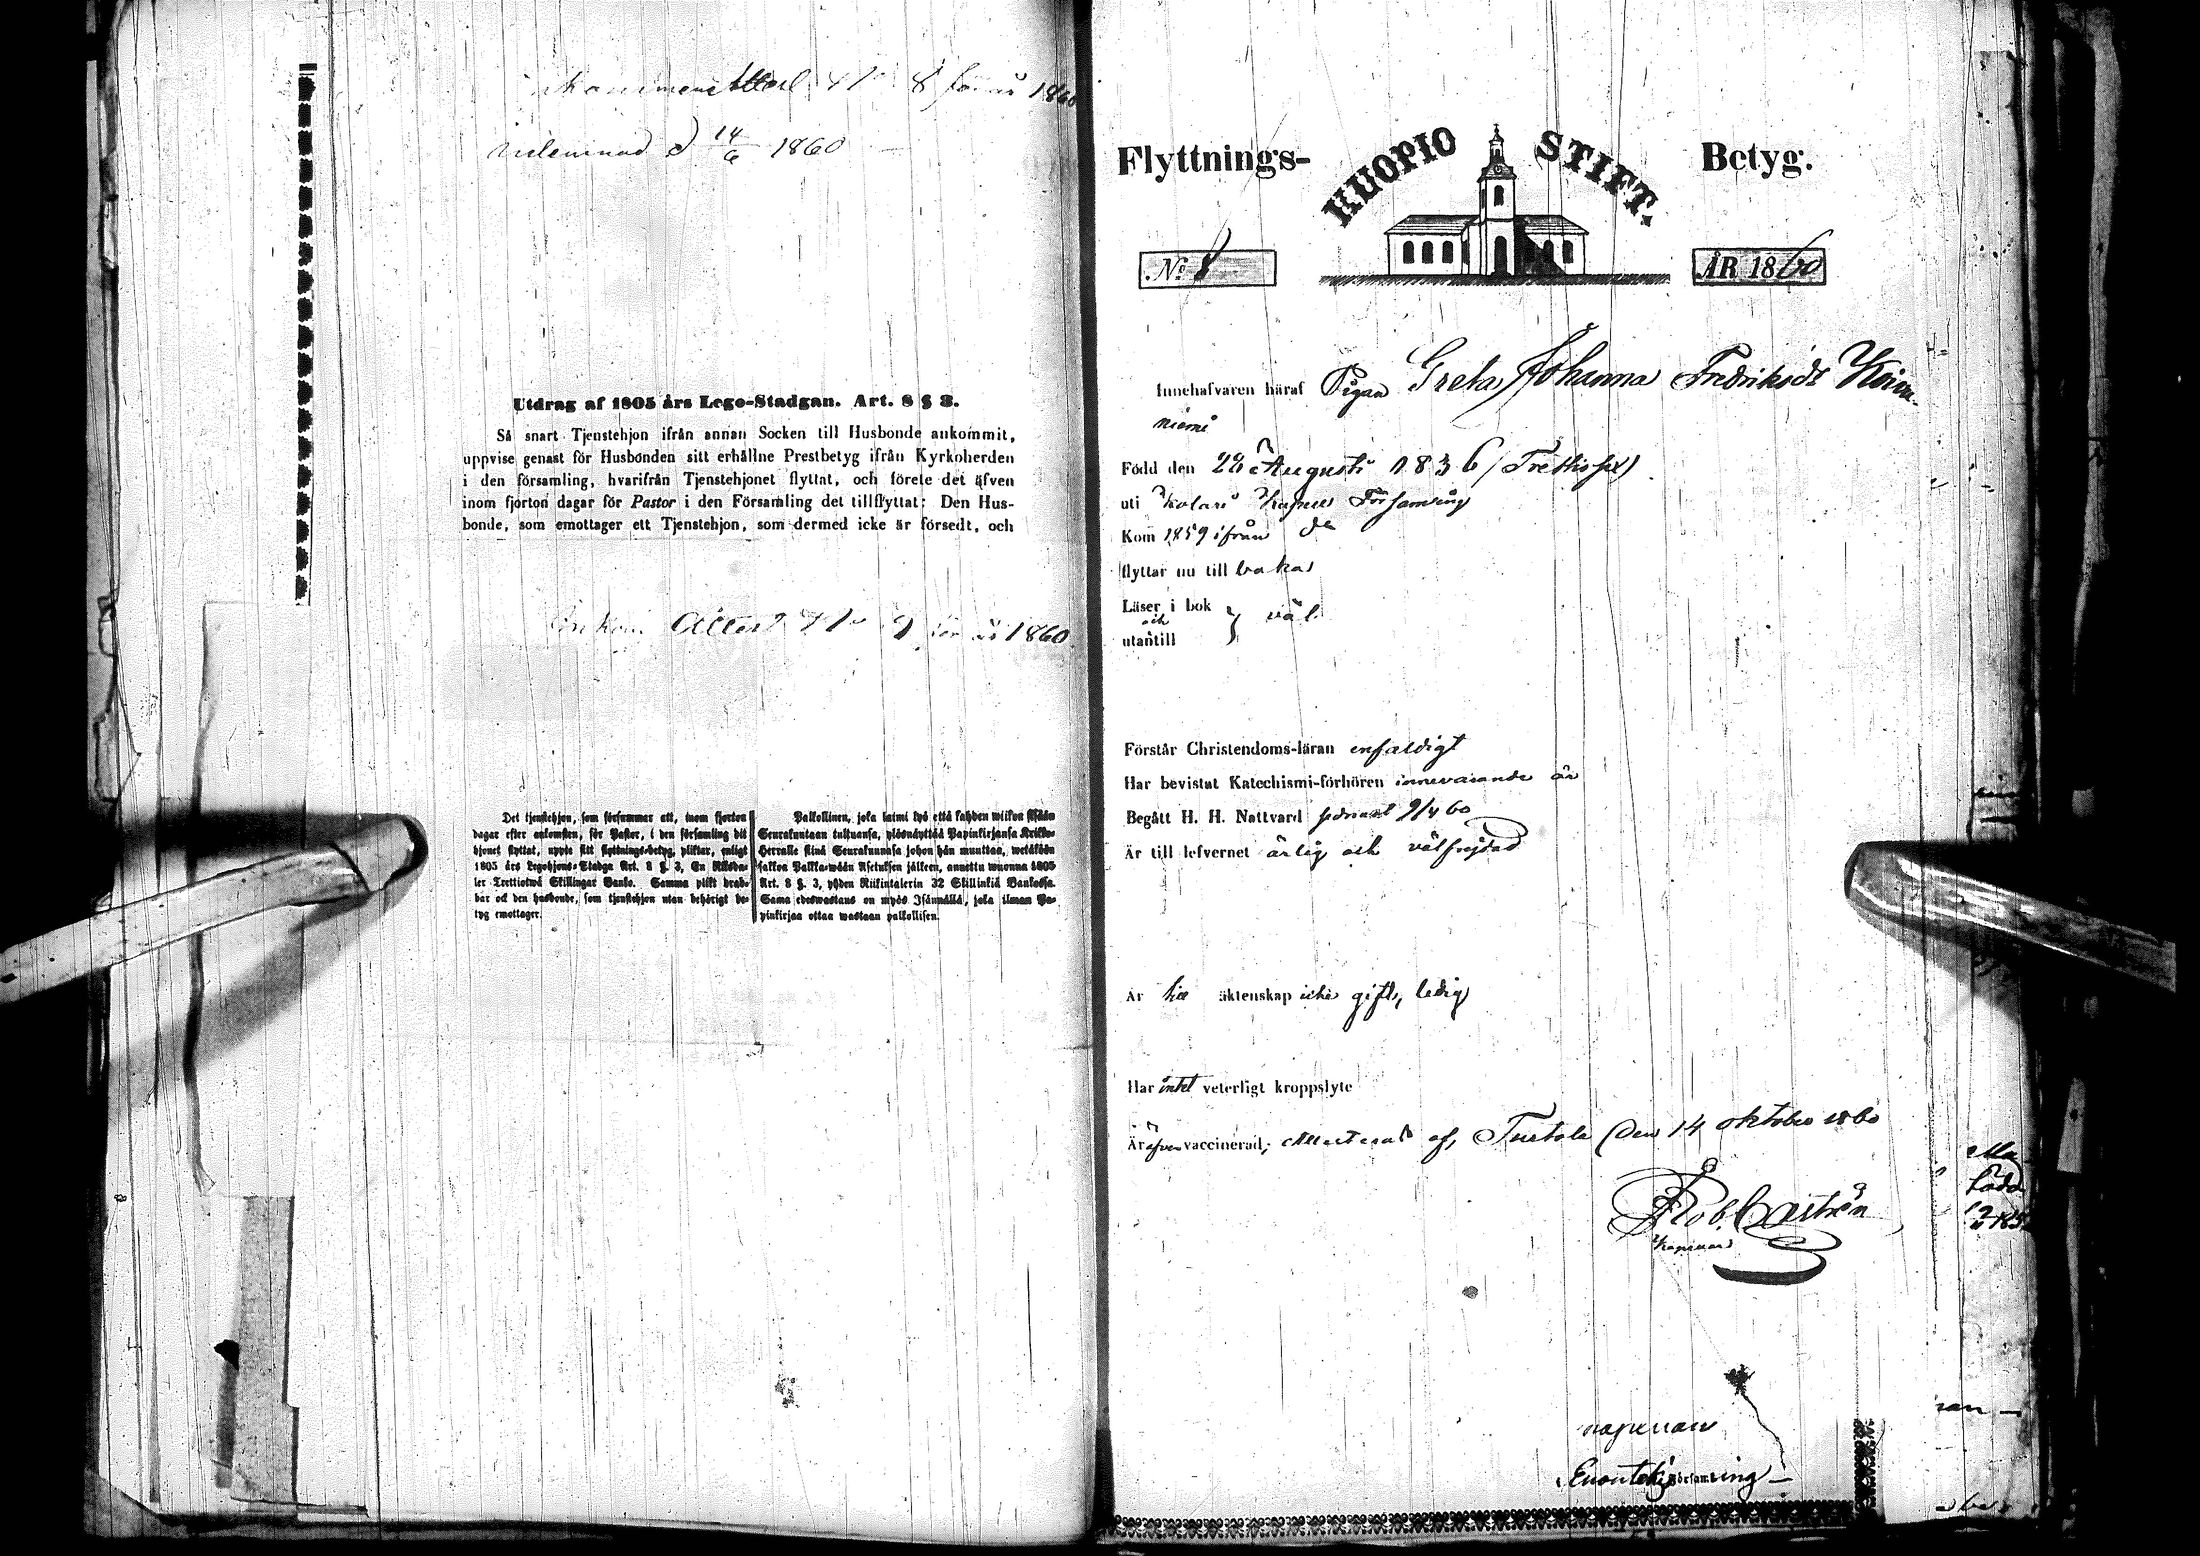 1860
inlemnad d 14/6 1860
Utdrag af 1805 års Lego-Stadgan. Art. 8 § 3.
Så snart Tjenstehjon ifrån annan Socken till Husbonde ankommit,
uppvise genast för Husbonden sitt erhållne Prestbetyg ifrån Kyrkoherden
i den församling, hvarifrån Tjenstehjonet flyttat, och förete det äfven
inom fjorton dagar för Pastor i den Församling det tillflyttat: Den Hus-
bonde, som emottager ett Tjenstehjon, som dermed icke är försedt, och
Attest No 9 för år 1860
Det tjenstehjon, som försummar att, inom fjorton
dagar efter ankomsten, för Pastor, i den församling dit
hjonet flyttat, uppte sitt flyttnings-betyg, pliktar, enligt
1805 års Legohjons-Stadga Art. 8 §. 3, En Riksda-
ler Trettiotwå Skillingar Banko. Samma plikt drab-
bar ock den husbonde, som tjenstehjon utan behörigt be-
tyg emottager.
Palkollinen, joka laimi lyö että kahden wiikon sisään
Seurakuntaan tultuansa, ylösnäyttää Papinkirjansa Kirkko-
Herralle siinä Seurakunnasa johon hän muuttaa, wetäköön
sakkoa Palkka-wäen Asetuksen jälkeen, annettu wuonna 1805
Art. 8 §. 3, yhden Riikintalerin 32 Skillinkiä Bankossa.
Sama edeswastaus on myös Isännällä, joka ilman Pa-
pinkirjaa ottaa wastaan palkollisen.
Flyttnings- HUOPIO STIFT. Betyg.
No 8 ÅR 1860
Innehafvaren häraf Pigan Greta Johanna Fredriksdr
niemi
Född den 22 Augusti 1836 (Trettiosex)
uti Kolari Kapell Församling
Kom 1859 ifrån do
flyttar nu till baka
Läser i bok
och } väl
utantill
Förstår Christendoms-läran enfaldigt
Har bevistat Katechismi-förhören innevarande år
Begått H. H. Nattvard sednast 9/4 60
Är till lefvernet ärlig och välfrejdad
Är till äktenskap icke gift, ledig
Har intet veterligt kroppslyte
Är äfven vaccinerad; attesterad af, Turtola den 14 oktober 1860
Rob. Castrén
Kapellan
Enonteki Församling